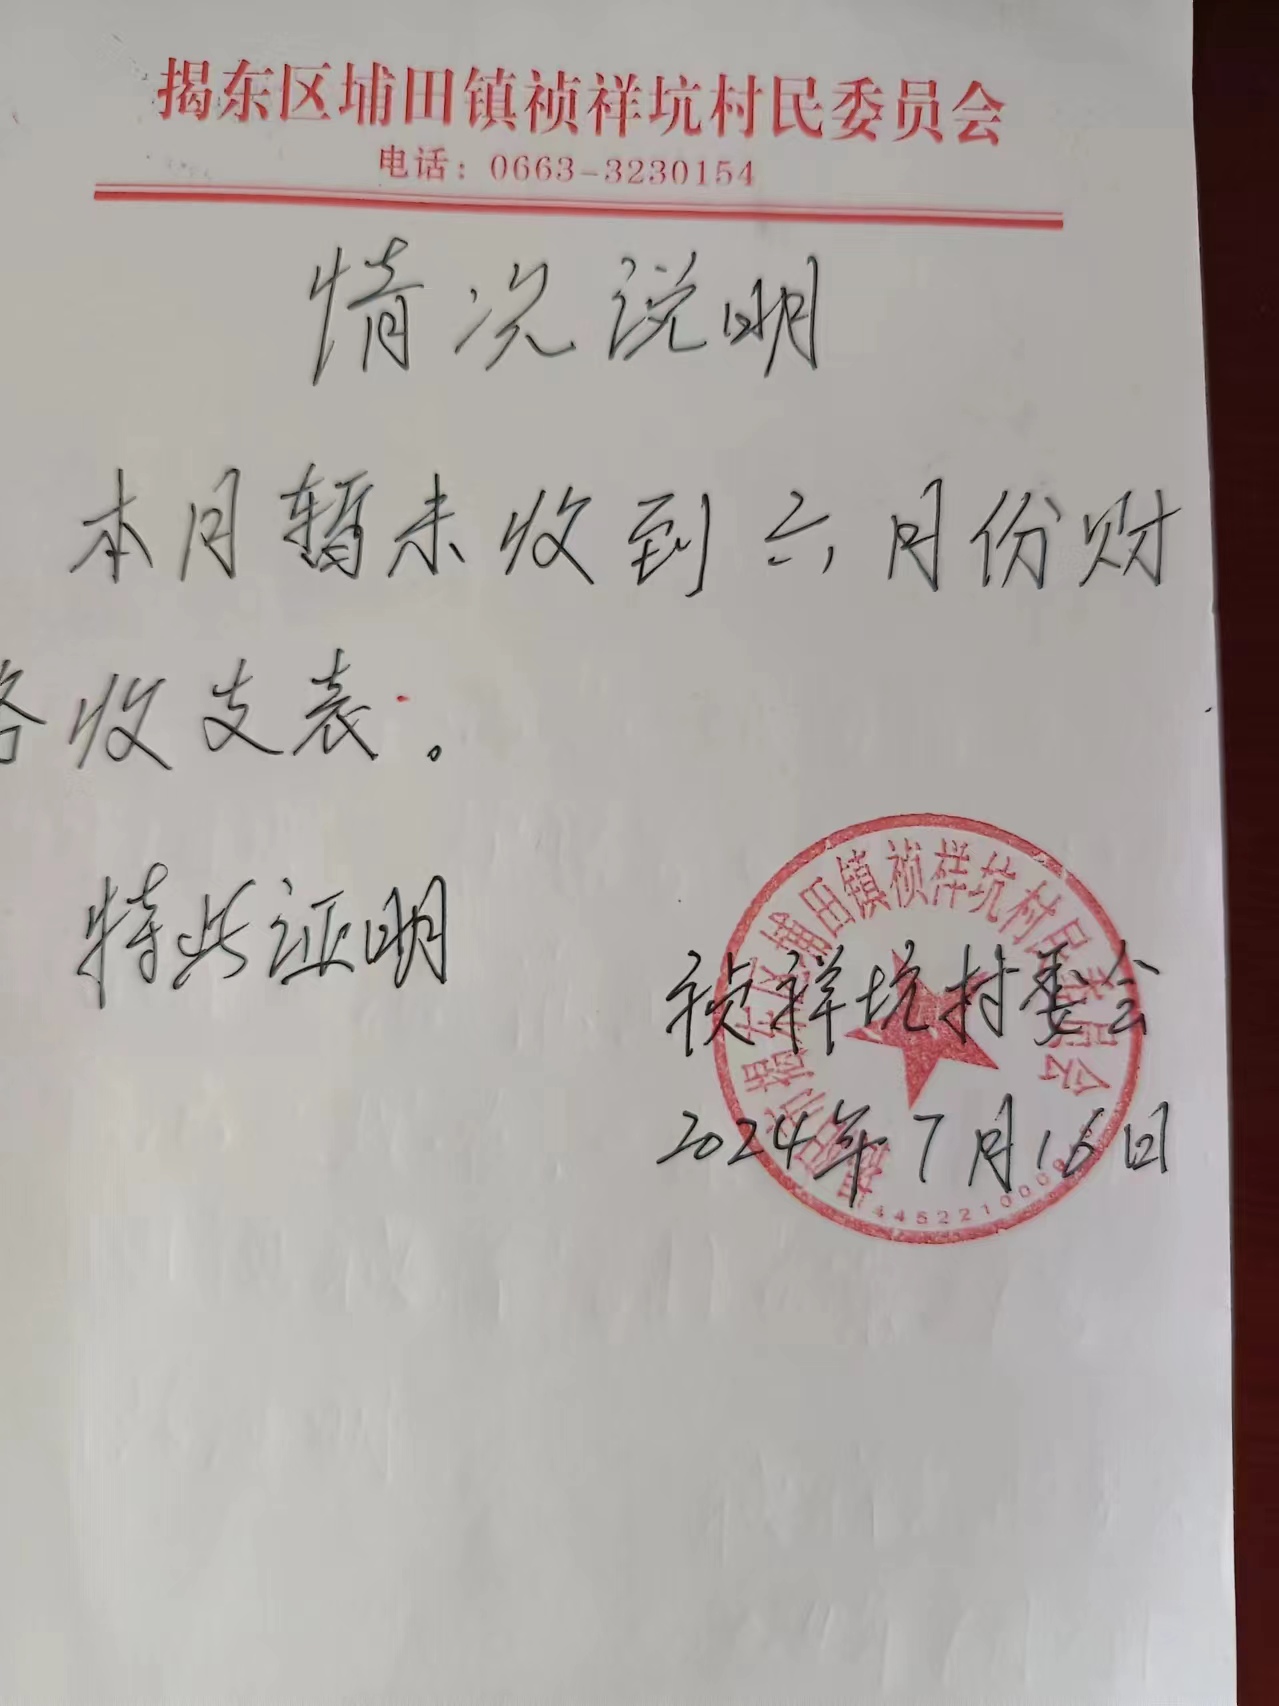 揭东区埔田镇祯祥坑村民委员会
电话：0663-3230154
情况说明
本月暂未收到六月份财
务收支表。
特此证明
祯祥坑村委会
2024年7月16日
埔田镇祯祥坑村民委员会
445221000